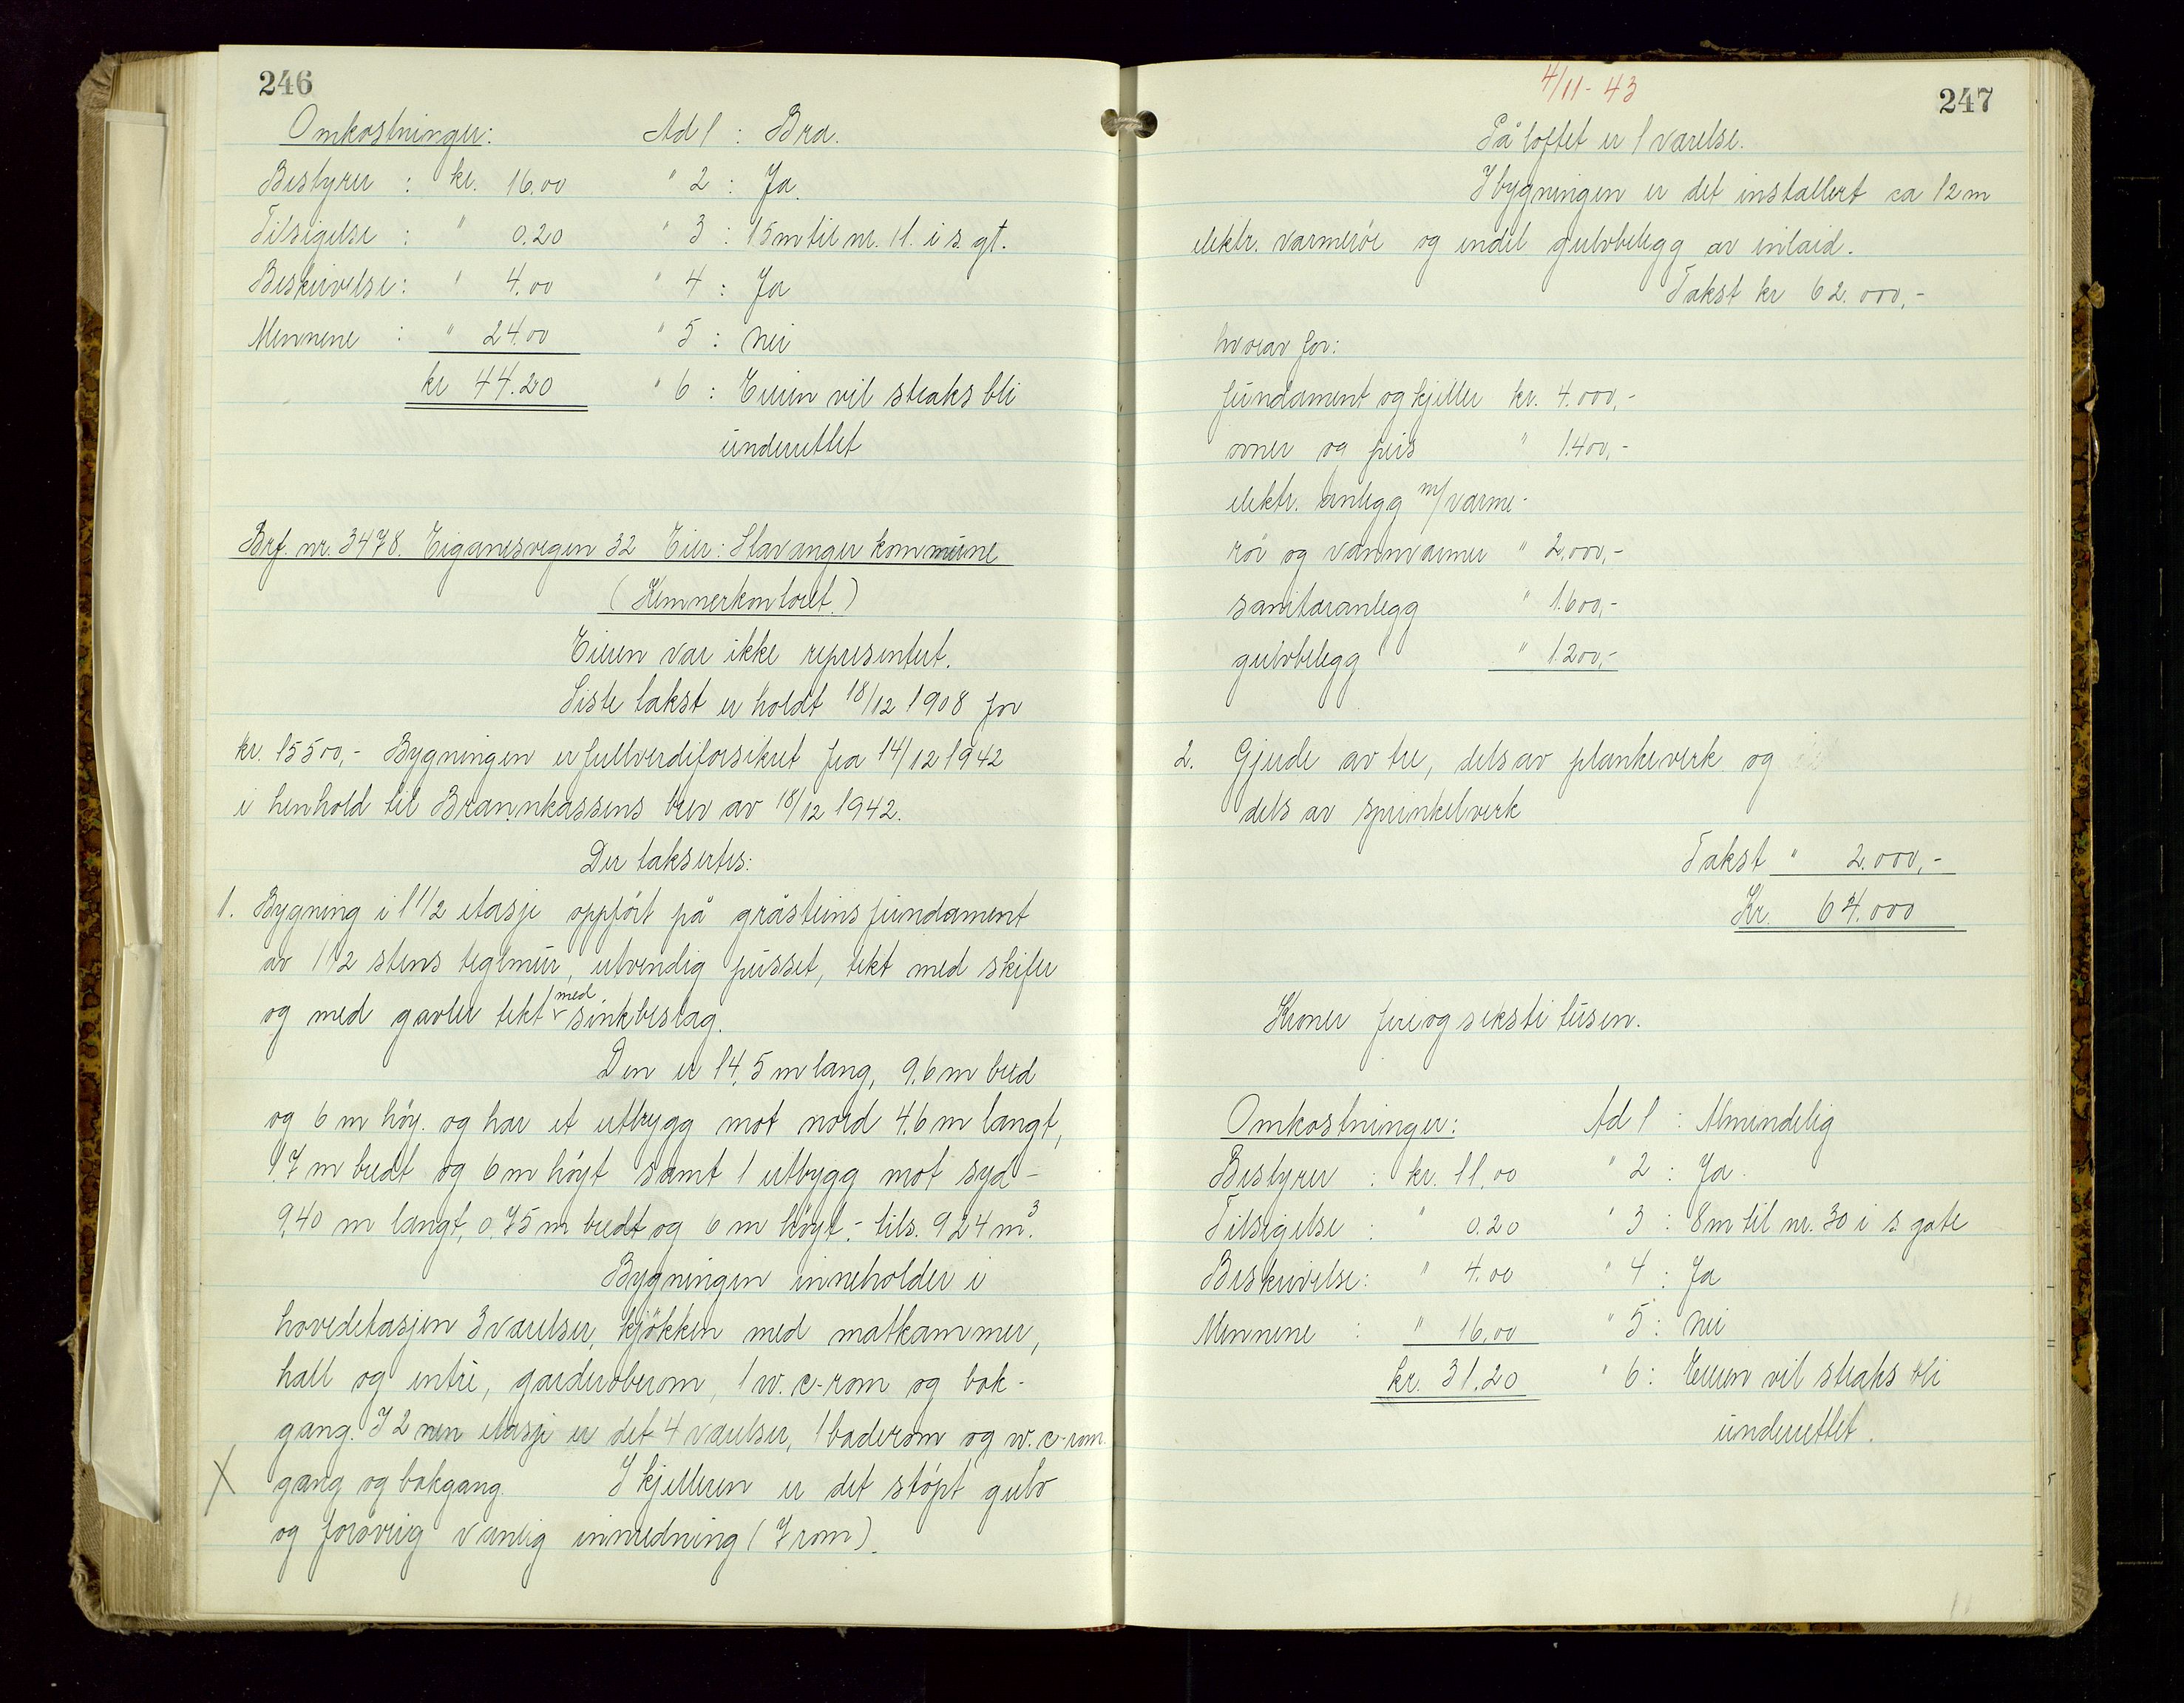 246
Omkostninger: Ad 1 : Bra.
Bestyrer : kr. 16,00 " 2 : Ja.
Tilsigelse : " 0.20 " 3 : 15m til nr. 11. i s. gt.
Beskrivelse: " 4.00 " 4 : Ja
Mennene : " 24.00 " 5 : nei
kr 44.20 " 6 : Eieren vil straks bli
underrettet
Brf. nr. 3478. Eiganesvegen 32 Eier: Stavanger kommune
(Kemnerkontoret.)
Eieren var ikke representert.
Siste takst er holdt 18/12 1908 for
kr. 15500,- Bygningen er fullverdiforsikret fra 14/12 1942
i henhold til Brannkassens brev av 18/12 1942.
Der takseres:
1. Bygning i 1 1/2 etasje oppført på gråsteinsfundament
av 1 1/2 stens teglmur, utvendig pusset, tekt med skifer
og med gavler tekt med sinkbeslag.
Den er 14,5 m lang, 9.6 m bred
og 6 m høy. og har et utbygg mot nord 4.6 m langt,
1.7 m bredt og 6 m høyt samt 1 utbygg mot syd -
9,40 m langt, 0,75 m bredt og 6 m høyt.- tils. 924 m³.
Bygningen inneholder i
hovedetasjen 3 værelser, kjøkken med matkammer,
hall og entré, garderoberom, 1 w.c-rom og bak-
gang. I 2nen etasje er det 4 værelser, 1 baderom og w.c-rom.
X gang og bakgang. I kjelleren er det støpt gulv
og forøvrig vanlig innredning (7 rom).
4/11-43
247
På loftet er 1 værelse.
I bygningen er det installert ca 12 m
elektr. varmerør og endel gulvbelegg av inlaid.
Takst kr 62.000,-
hvorav for:
fundament og kjeller kr. 4.000,-
ovner og peis " 1.400,-
elektr. anlegg m/varme-
rør og vannvarmer " 2.000,-
sanitæranlegg " 1.600,-
gulvbelegg " 1.200,-
2. Gjerde av tre, dels av plankeverk og
dels av sprinkelverk
Takst " 2.000,-
Kr. 64.000
Kroner fireogseksti tusen.
Omkostninger: Ad 1 : Almindelig
Bestyrer : kr. 11,00 " 2 : Ja.
Tilsigelse : " 0.20 " 3 : 8m til nr. 30 i s gate
Beskrivelse: " 4.00 " 4 : Ja
Mennene : " 16,00 " 5 : nei
kr. 31.20 " 6 : Eieren vil straks bli
underrettet.